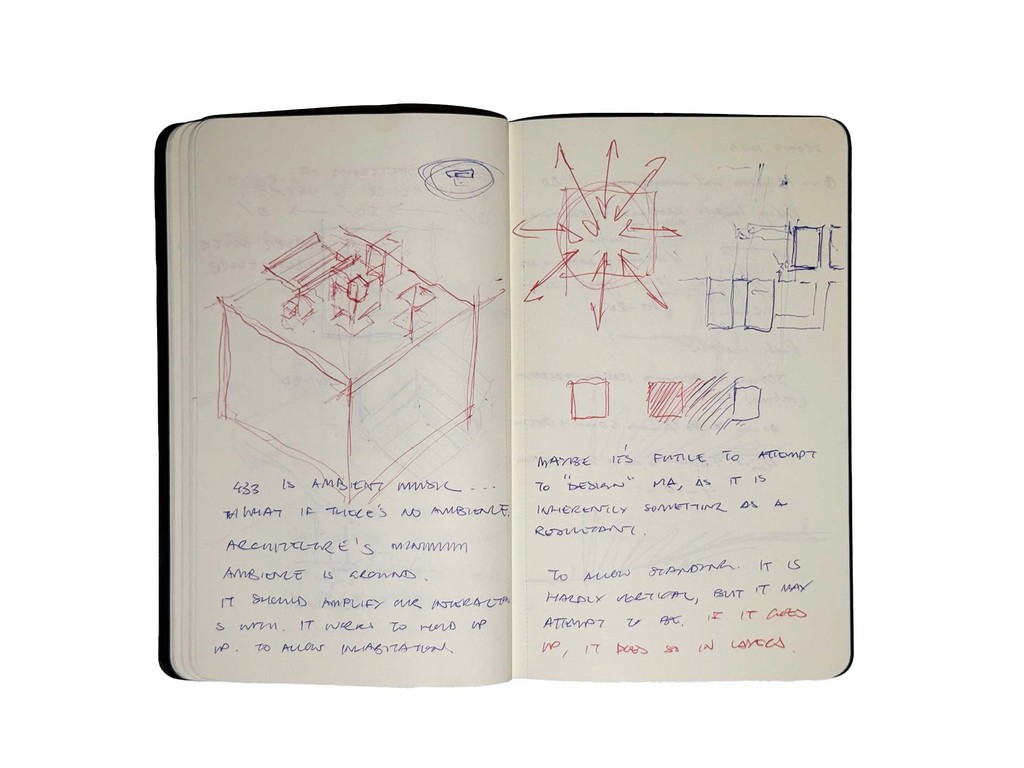 433 IS AMBIENT MUSIC ...
WHAT IF THERE'S NO AMBIENCE.
ARCHITECTURE'S MINIMUM
AMBIENCE IS GROUND.
IT SHOULD AMPLIFY OUR INTERACTION
S WITH. IT WORKS TO HOLD UP
UP. TO ALLOW INHABITATION.
MAYBE IT'S FUTILE TO ATTEMPT
TO "DESIGN" MA, AS IT IS
INHERENTLY SOMETHING AS A
RESULTANT.
TO ALLOW STANDING. IT IS
HARDLY VERTICAL, BUT IT MAY
ATTEMPT TO BE. IF IT GOES
UP, IT DOES SO IN LAYERS.